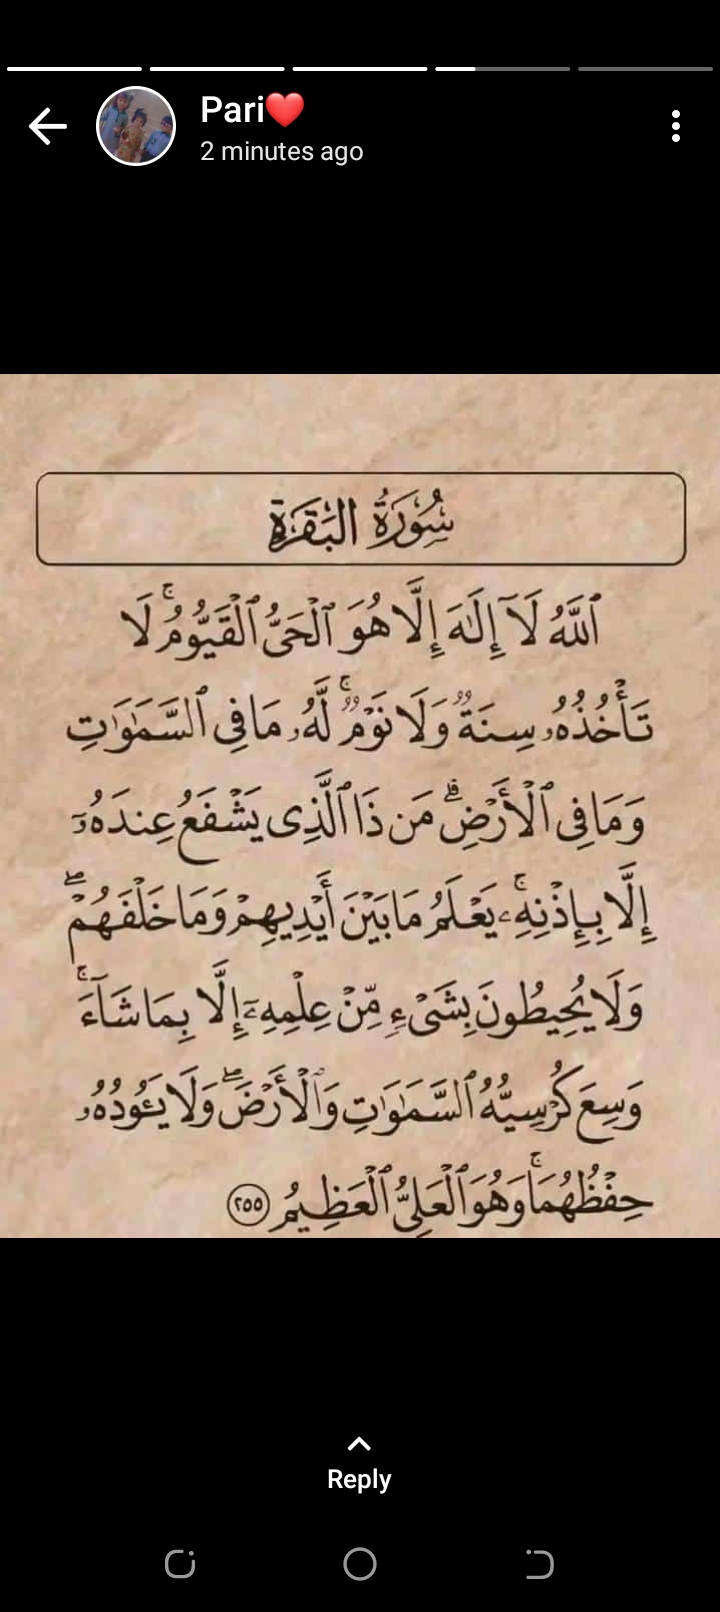 Pari❤️
2 minutes ago
سُورَةُ البَقَرَةِ
ٱللَّهُ لَآ إِلَٰهَ إِلَّا هُوَ ٱلْحَىُّ ٱلْقَيُّومُ ۚ لَا
تَأْخُذُهُۥ سِنَةٌ وَلَا نَوْمٌ ۚ لَّهُۥ مَا فِى ٱلسَّمَٰوَٰتِ
وَمَا فِى ٱلْأَرْضِ ۗ مَن ذَا ٱلَّذِى يَشْفَعُ عِندَهُۥٓ
إِلَّا بِإِذْنِهِۦ ۚ يَعْلَمُ مَا بَيْنَ أَيْدِيهِمْ وَمَا خَلْفَهُمْ ۖ
وَلَا يُحِيطُونَ بِشَىْءٍ مِّنْ عِلْمِهِۦٓ إِلَّا بِمَا شَآءَ ۚ
وَسِعَ كُرْسِيُّهُ ٱلسَّمَٰوَٰتِ وَٱلْأَرْضَ ۖ وَلَا يَـُٔودُهُۥ
حِفْظُهُمَا ۚ وَهُوَ ٱلْعَلِىُّ ٱلْعَظِيمُ ٢٥٥
Reply